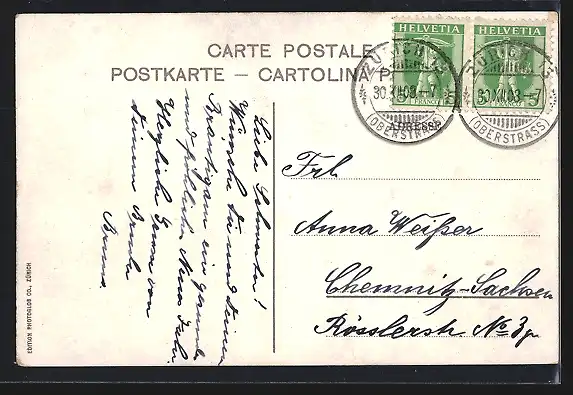 CARTE POSTALE
POSTKARTE – CARTOLINA P
HELVETIA
HELVETIA
5 FRANCO 5
5 FRANCO 5
ZÜRICH
30.XII.08.–7
(OBERSTRASS)
ZÜRICH
30.XII.08.–7
(OBERSTRASS)
ADRESSE
Frl.
Anna Weißer
Chemnitz-Sachsen
Rösslerstr. No 3
Liebe Schwester!
Wünsche Dir und deinem
Bräutigam ein gesundes
und fröhliches Neues Jahr.
Herzliche Grüsse von
deinem Bruder
EDITION PHOTOGLOB CO., ZÜRICH